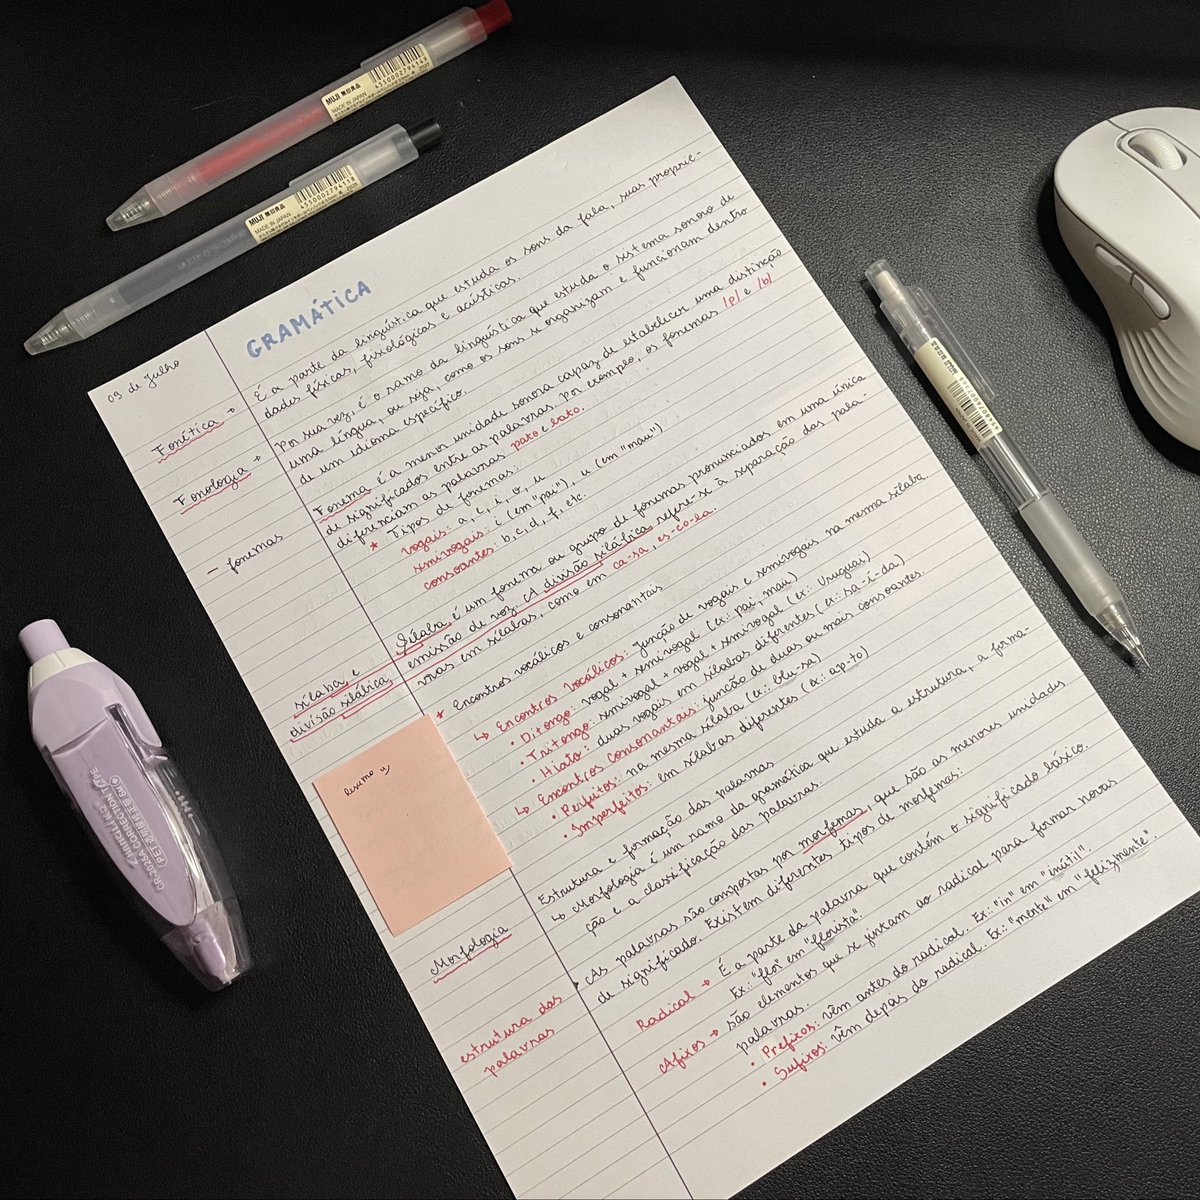 MUJI 無印良品
MADE IN JAPAN
4550002794149
MUJI 無印良品
MADE IN JAPAN
4550002794118
09 de Julho
GRAMÁTICA
Fonética →
É a parte da linguística que estuda os sons da fala, suas proprie-
dades físicas, fisiológicas e acústicas.
Fonologia →
Por sua vez, é o ramo da linguística que estuda o sistema sonoro de
uma língua, ou seja, como os sons se organizam e funcionam dentro
de um idioma específico.
– fonemas
Fonema é a menor unidade sonora capaz de estabelecer uma distinção
de significados entre as palavras. Por exemplo, os fonemas /p/ e /b/
diferenciam as palavras pato e bato.
* Tipos de fonemas:
vogais: a, e, i, o, u
semivogais: i (em "pai"), u (em "mau")
consoantes: b, c, d, f, etc.
sílaba e
divisão silábica
Sílaba é um fonema ou grupo de fonemas pronunciados em uma única
emissão de voz. A divisão silábica refere-se à separação das pala-
vras em sílabas, como em ca-sa, es-co-la.
* Encontros vocálicos e consonantais
↳ Encontros Vocálicos: junção de vogais e semivogais na mesma sílaba
• Ditongo: vogal + semivogal (ex.: pai, mau)
• Tritongo: semivogal + vogal + semivogal (ex.: Uruguai)
• Hiato: duas vogais em sílabas diferentes (ex.: sa-í-da)
↳ Encontros Consonantais: junção de duas ou mais consoantes.
• Perfeitos: na mesma sílaba (ex.: blu-sa)
• Imperfeitos: em sílabas diferentes (ex.: ap-to)
resumo
Morfologia
Estrutura e formação das palavras
↳ Morfologia é um ramo da gramática que estuda a estrutura, a forma-
ção e a classificação das palavras.
estrutura das
palavras
As palavras são compostas por morfemas, que são as menores unidades
de significado. Existem diferentes tipos de morfemas:
Radical → É a parte da palavra que contém o significado básico.
Ex.: "flor" em "florista".
Afixos → são elementos que se juntam ao radical para formar novas
palavras.
• Prefixos: vêm antes do radical. Ex.: "in" em "inútil".
• Sufixos: vêm depois do radical. Ex.: "mente" em "felizmente".
CORRECTION TAPE